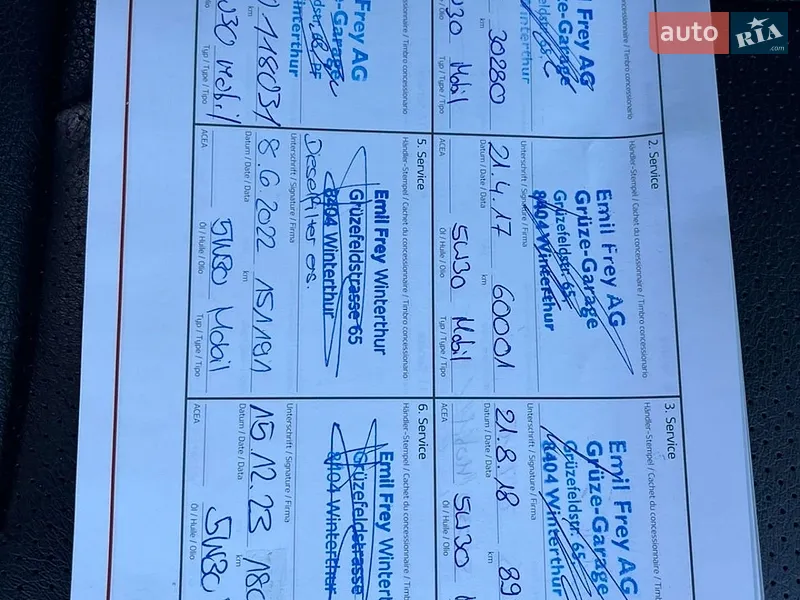 auto RIA
.com
Frey AG
-Garage
Winterthur
30280
km
5W30 Mobil
Typ / Type / Tipo
2. Service
Händler-Stempel / Cachet du concessionnaire / Timbro concessionario
Emil Frey AG
Grüze-Garage
Grüzefeldstr. 65
8404 Winterthur
Unterschrift / Signature / Firma
21.4.17 60001
Datum / Date / Data km
5W30 Mobil
ACEA Öl / Huile / Olio Typ / Type / Tipo
3. Service
Händler-Stempel / Cachet du concessionnaire
Emil Frey AG
Grüze-Garage
Grüzefeldstr. 65
8404 Winterthur
Unterschrift / Signature / Firma
21.8.18 89
Datum / Date / Data km
5W30
ACEA Öl / Huile / Olio
Frey AG
-Garage
Winterthur
118031
km
Mobil
Typ / Type / Tipo
5. Service
Händler-Stempel / Cachet du concessionnaire / Timbro concessionario
Emil Frey Winterthur
Grüzefeldstrasse 65
8404 Winterthur
Unterschrift / Signature / Firma
8.6.2022 151191
Datum / Date / Data km
5W30 Mobil
ACEA Öl / Huile / Olio Typ / Type / Tipo
6. Service
Händler-Stempel / Cachet du concessionnaire
Emil Frey Wintert
Grüzefeldstrasse
8404 Winterthur
Unterschrift / Signature / Firma
15.12.23 180
Datum / Date / Data km
5W30
ACEA Öl / Huile / Olio